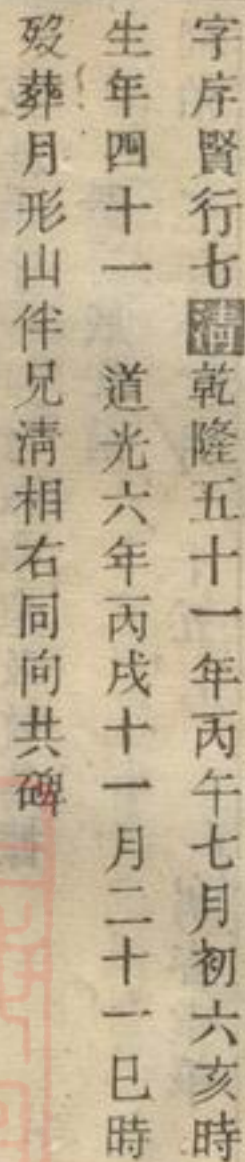 字序賢行七清乾隆五十一年丙午七月初六亥時
生年四十一 道光六年丙戌十一月二十一巳時
歿葬月形山伴兄清相右同向共碑